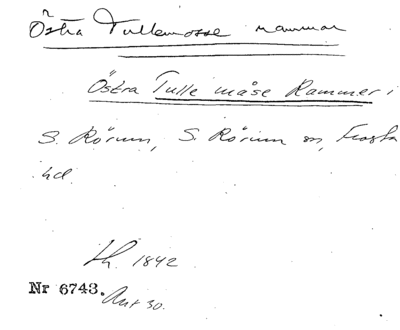 Östra Tullemosse rammar
Östra Tulle måse Rammer i
S. Rörum, S. Rörum sn, Frosta
hd.
Lh. 1842
Nr 6743. Ant 30.